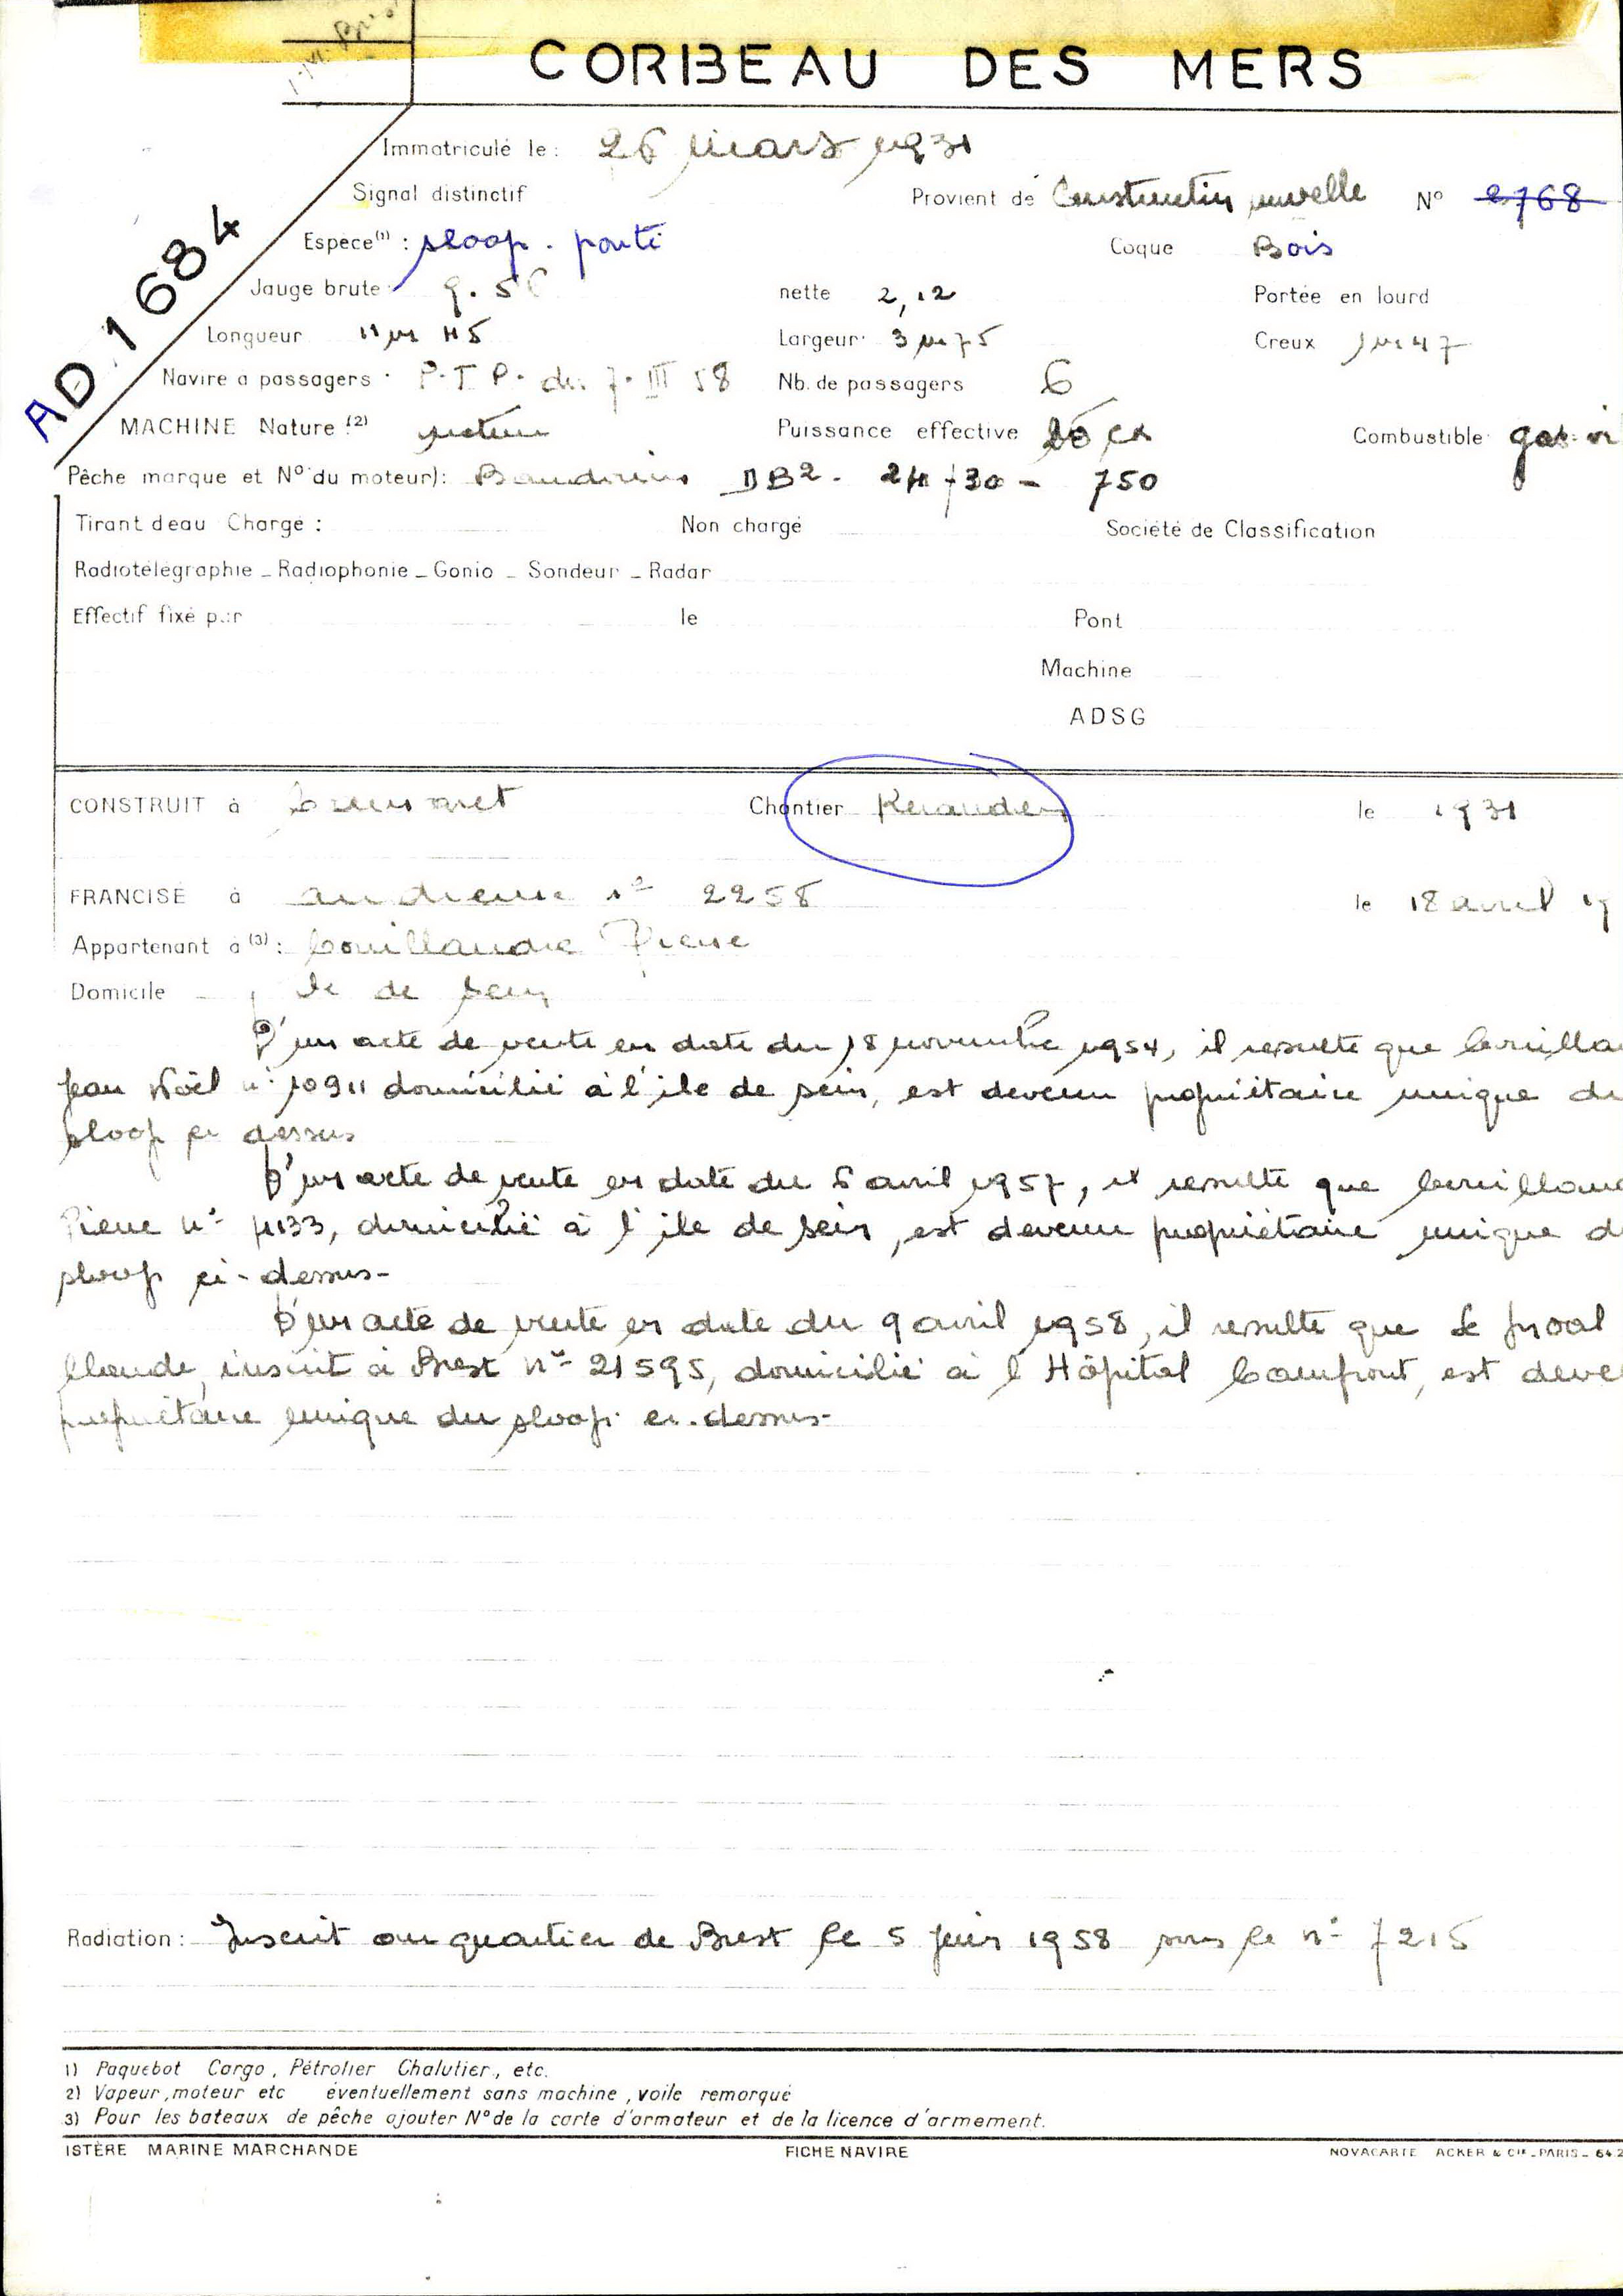 CORBEAU DES MERS
AD 1684
Immatriculé le : 26 mars 1931
Signal distinctif Provient de Construction nouvelle N° 2768
Espèce (1) : sloop . ponté Coque Bois
Jauge brute : 9.56 nette 2,12 Portée en lourd
Longueur 11 m 45 Largeur 3 m 75 Creux 1 m 47
Navire à passagers P.T.P. du 7. III 58 Nb. de passagers 6
MACHINE Nature (2) moteur Puissance effective cv Combustible gas-oi
Pêche marque et N° du moteur) : Baudouin DB2 - 24/30 - 750
Tirant deau Chargé : Non chargé Société de Classification
Radiotélégraphie _ Radiophonie _ Gonio _ Sondeur _ Radar
Effectif fixé par le Pont
Machine
ADSG
CONSTRUIT à Camaret Chantier Keraudren le 1931
FRANCISÉ à Audierne n° 2258 le 18 avril 19
Appartenant à (3) : Couillandre Pierre
Domicile Ile de Sein
D'un acte de vente en date du 18 novembre 1954, il resulte que Couilla
Jean Noël n° 10911 domicilié à l'ile de sein, est devenu propriétaire unique du
sloop ci dessus
D'un acte de vente en date du 6 avril 1957, il resulte que Couillan
Pierre n° 4133, domicilié à l'ile de sein, est devenu propriétaire unique d
sloop ci-dessus-
D'un acte de vente en date du 9 avril 1958, il resulte que Le
Claude, inscrit à Brest n° 21595, domicilié à l'Hôpital Camfrout, est deve
propriétaire unique du sloop ci-dessus-
Radiation : Inscrit au quartier de Brest le 5 juin 1958 sous le n° 7215
1) Paquebot Cargo, Pétrolier Chalutier, etc.
2) Vapeur, moteur etc éventuellement sans machine, voile remorqué
3) Pour les bateaux de pêche ajouter N° de la carte d'armateur et de la licence d'armement.
ISTÈRE MARINE MARCHANDE FICHE NAVIRE NOVACARTE ACKER & Cie - PARIS - 64.2